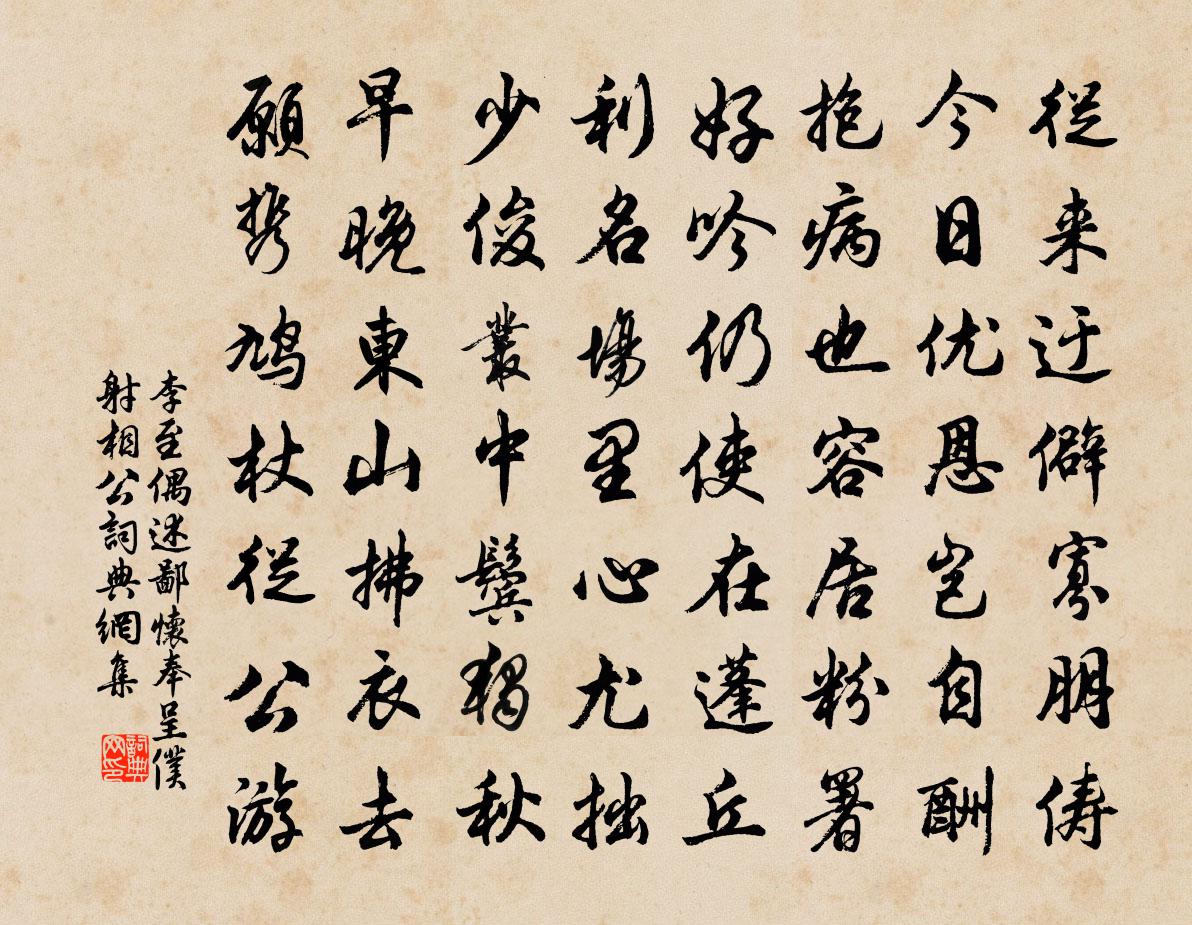 從来迂僻寡朋儔
今日优恩岂自酬
抱病也容居粉署
好吟仍使在蓬丘
利名場里心尤拙
少俊叢中鬓独秋
早晚東山拂衣去
願携鸠杖從公游
李至偶述鄙懷奉呈僕
射相公詞典網集
詞典网印